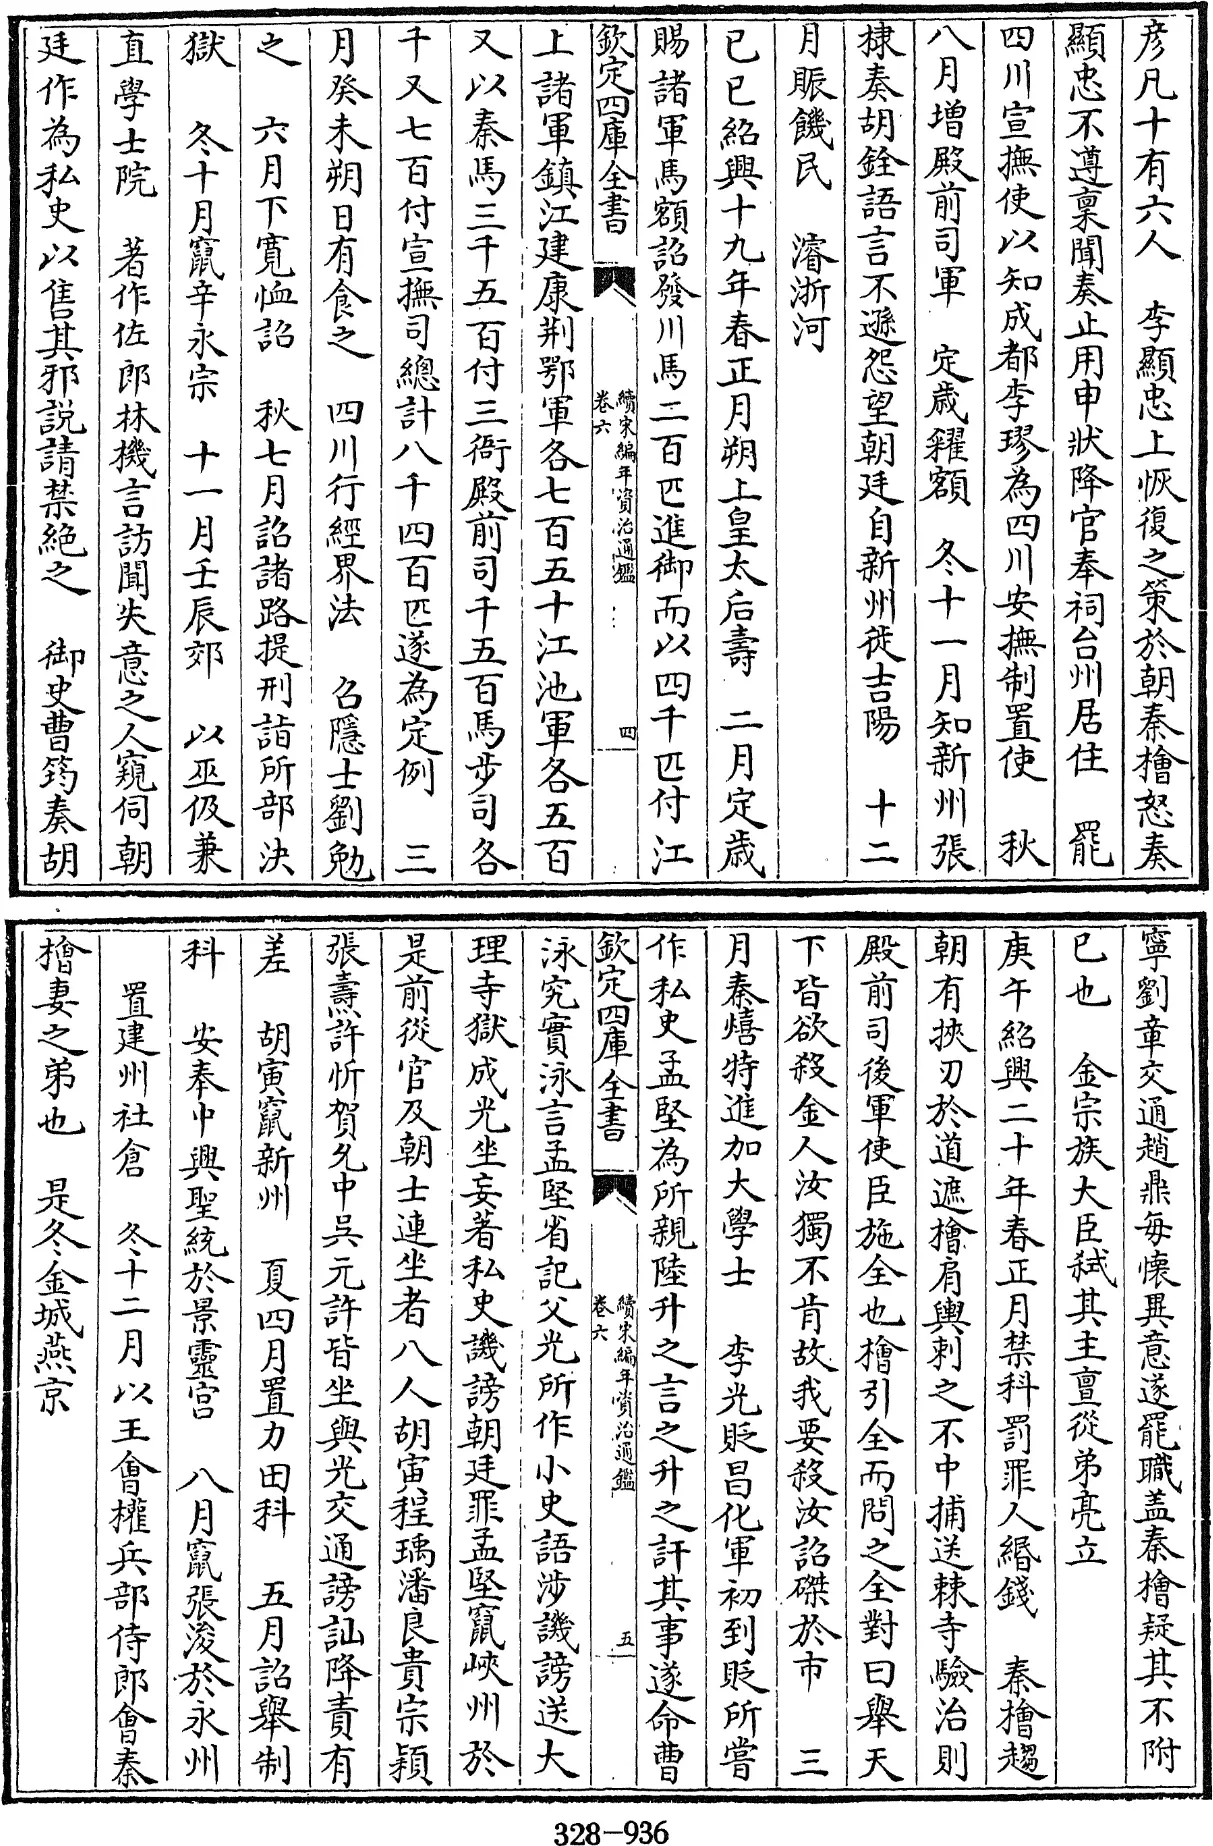 彦凡十有六人　李顯忠上恢復之策於朝秦檜怒奏
顯忠不遵稟聞奏止用申狀降官奉祠台州居住　罷
四川宣撫使以知成都李璆為四川安撫制置使　秋
八月增殿前司軍　定歲糴額　冬十一月知新州張
棣奏胡銓語言不遜怨望朝廷自新州徙吉陽　十二
月賑饑民　濬浙河
己巳紹興十九年春正月朔上皇太后壽　二月定歲
賜諸軍馬額詔發川馬二百匹進御而以四千匹付江
欽定四庫全書　續宋編年資治通鑑　卷六　四
上諸軍鎮江建康荆鄂軍各七百五十江池軍各五百
又以秦馬三千五百付三衙殿前司千五百馬步司各
千又七百付宣撫司總計八千四百匹遂為定例　三
月癸未朔日有食之　四川行經界法　召隱士劉勉
之　六月下寛恤詔　秋七月詔諸路提刑詣所部決
獄　冬十月竄辛永宗　十一月壬辰郊　以巫伋兼
直學士院　著作佐郎林機言訪聞失意之人窺伺朝
廷作為私史以售其邪説請禁絶之　御史曹筠奏胡
寧劉章交通趙鼎每懷異意遂罷職盖秦檜疑其不附
已也　金宗族大臣弑其主亶從弟亮立
庚午紹興二十年春正月禁科罰罪人緡錢　秦檜趨
朝有挾刃於道遮檜肩輿刺之不中捕送棘寺驗治則
殿前司後軍使臣施全也檜引全而問之全對曰舉天
下皆欲殺金人汝獨不肯故我要殺汝詔磔於市　三
月秦熺特進加大學士　李光貶昌化軍初到貶所嘗
作私史孟堅為所親陸升之言之升之訐其事遂命曹
欽定四庫全書　續宋編年資治通鑑　卷六　五
泳究實泳言孟堅省記父光所作小史語涉譏謗送大
理寺獄成光坐妄著私史譏謗朝廷罪孟堅竄峽州於
是前從官及朝士連坐者八人胡寅程瑀潘良貴宗頴
張燾許忻賀允中吳元許皆坐與光交通謗訕降責有
差　胡寅竄新州　夏四月置力田科　五月詔舉制
科　安奉中興聖統於景靈宫　八月竄張浚於永州
置建州社倉　冬十二月以王會權兵部侍郎會秦
檜妻之弟也　是冬金城燕京
328-936